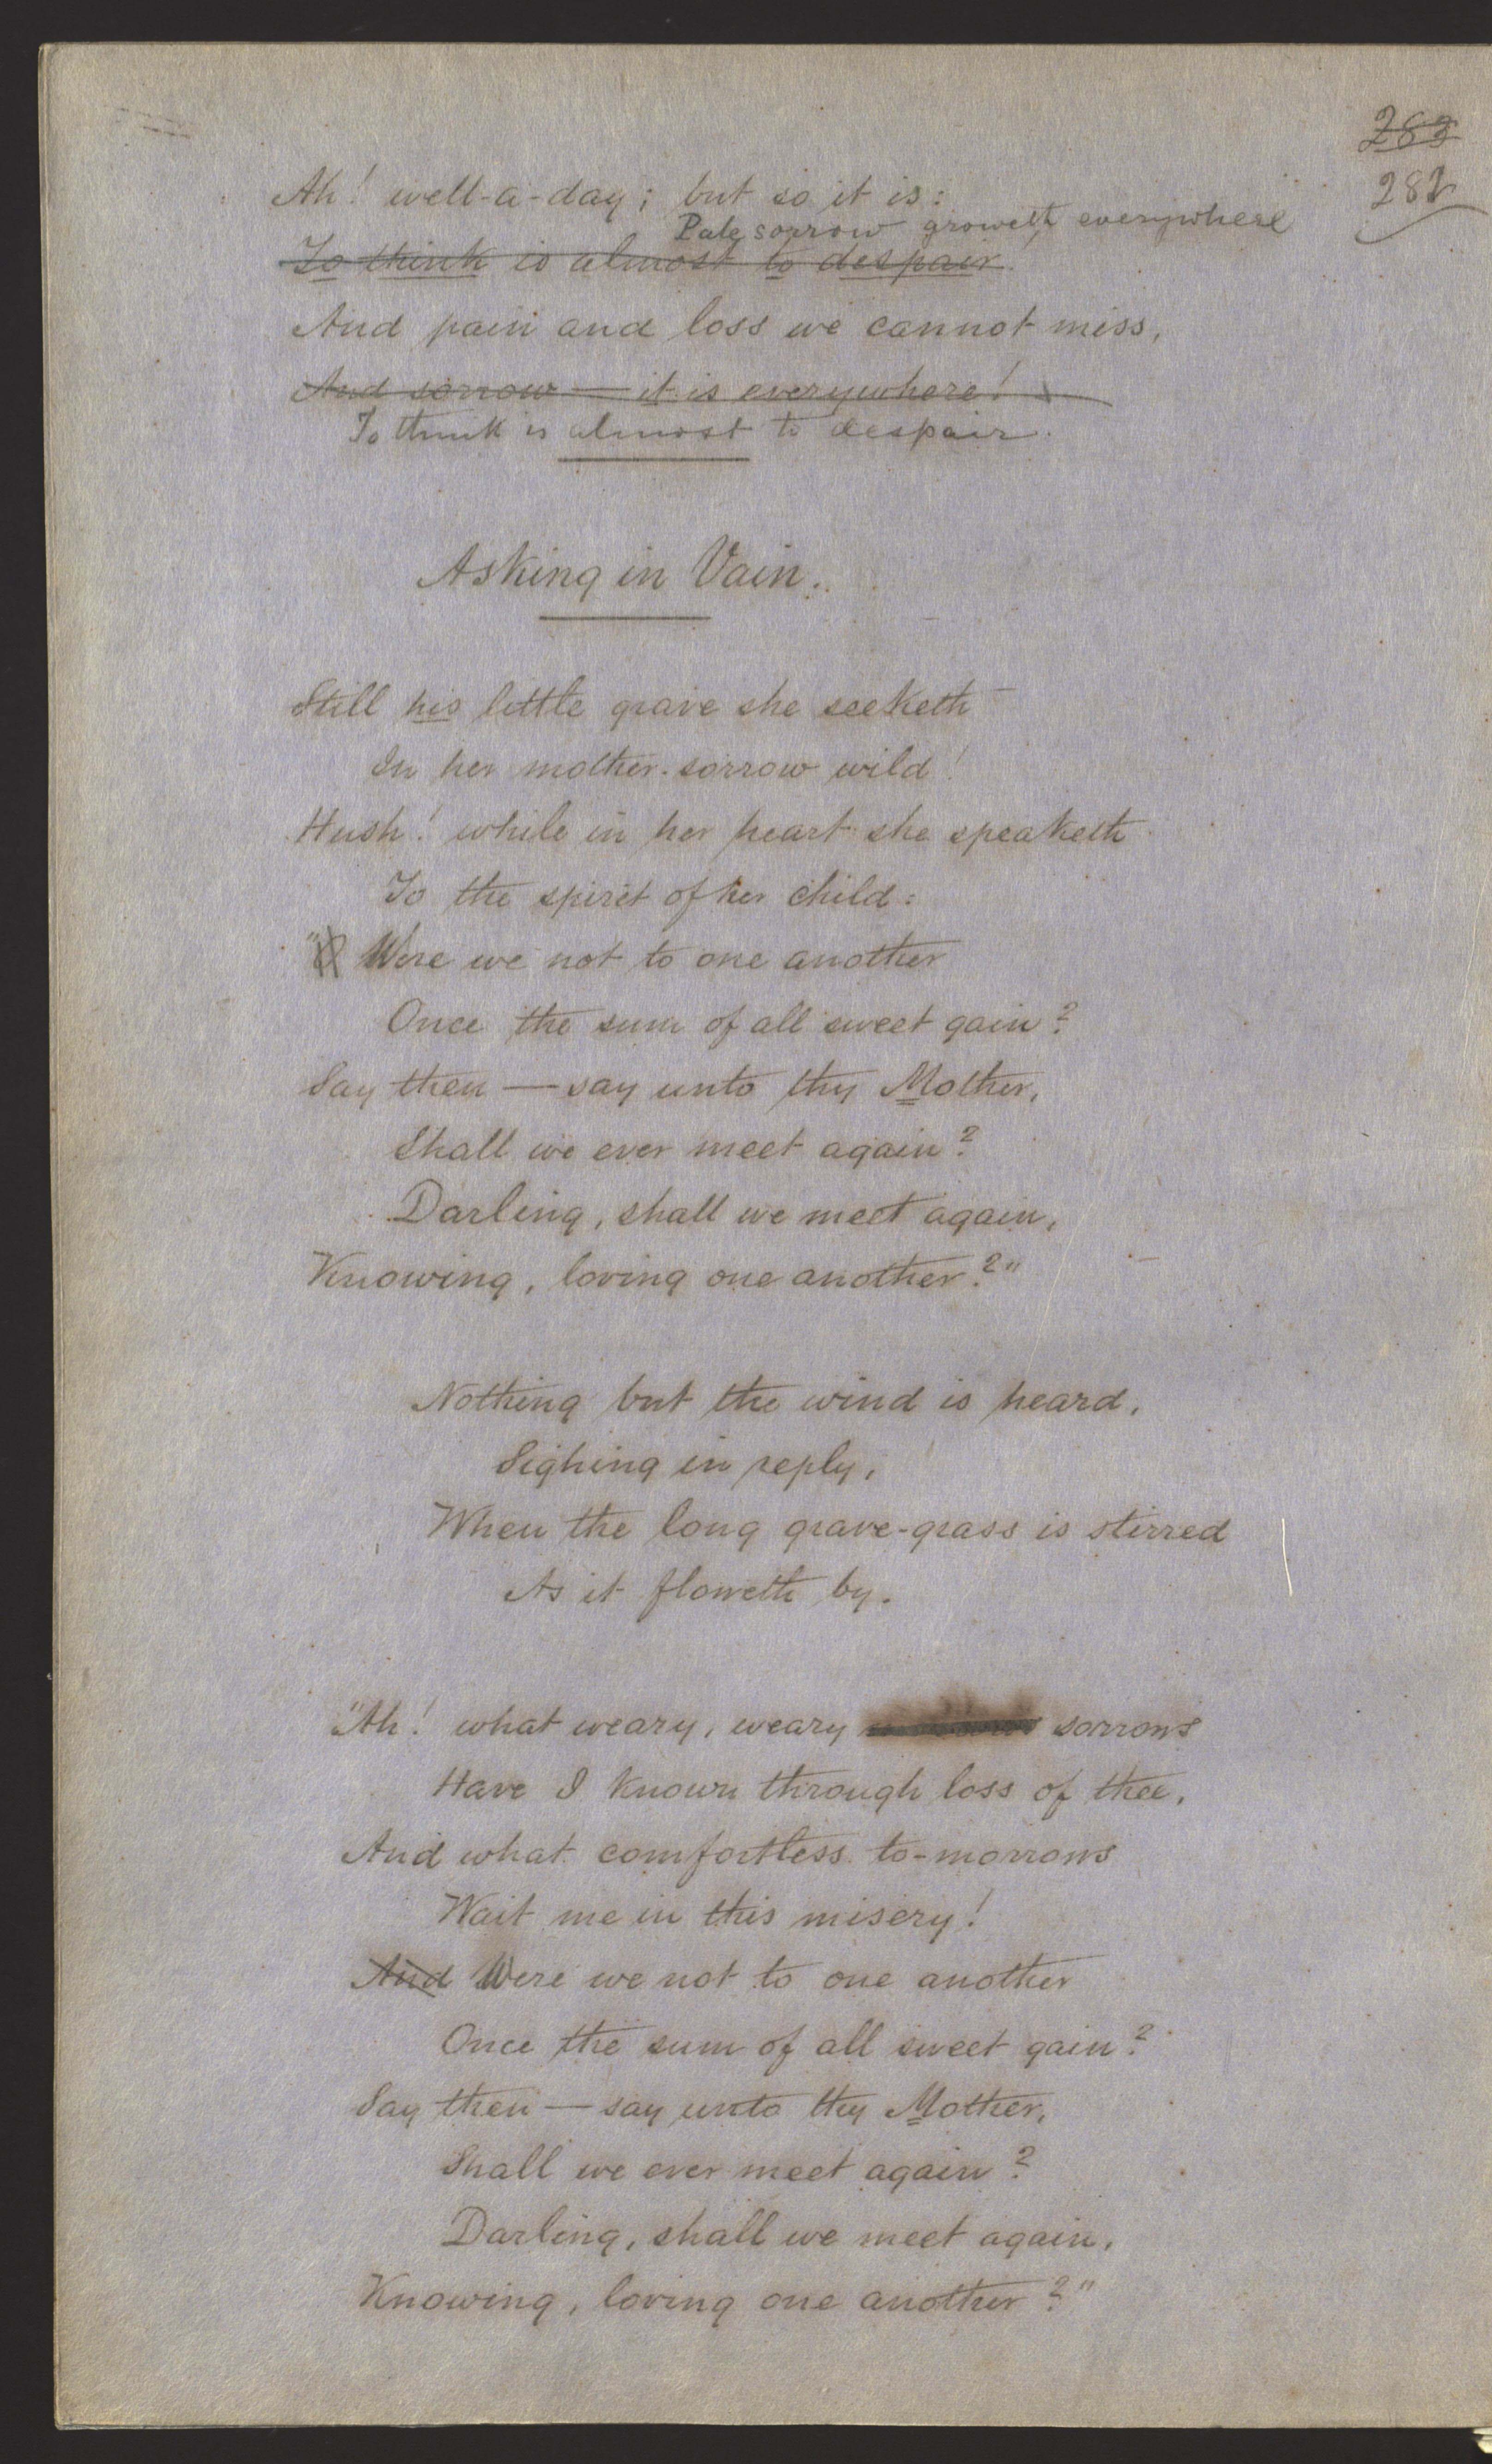 283
282
Ah! well-a-day; but so it is:
Pale sorrow groweth everywhere
To think is almost to despair.
And pain and loss we cannot miss,
And sorrow — it is everywhere!
To think is almost to despair.
Asking in Vain.
Still his little grave she seeketh
In her mother-sorrow wild!
Hush! while in her heart she speaketh
To the spirit of her child:
" Were we not to one another
Once the sum of all sweet gain?
Say then — say unto thy Mother,
Shall we ever meet again?
Darling, shall we meet again,
Knowing, loving one another?"
Nothing but the wind is heard,
Sighing in reply,
When the long grave-grass is stirred
As it floweth by.
"Ah! what weary, weary sorrows
Have I known through loss of thee,
And what comfortless to-morrows
Wait me in this misery!
And Were we not to one another
Once the sum of all sweet gain?
Say then — say unto thy Mother,
Shall we ever meet again?
Darling, shall we meet again,
Knowing, loving one another?"